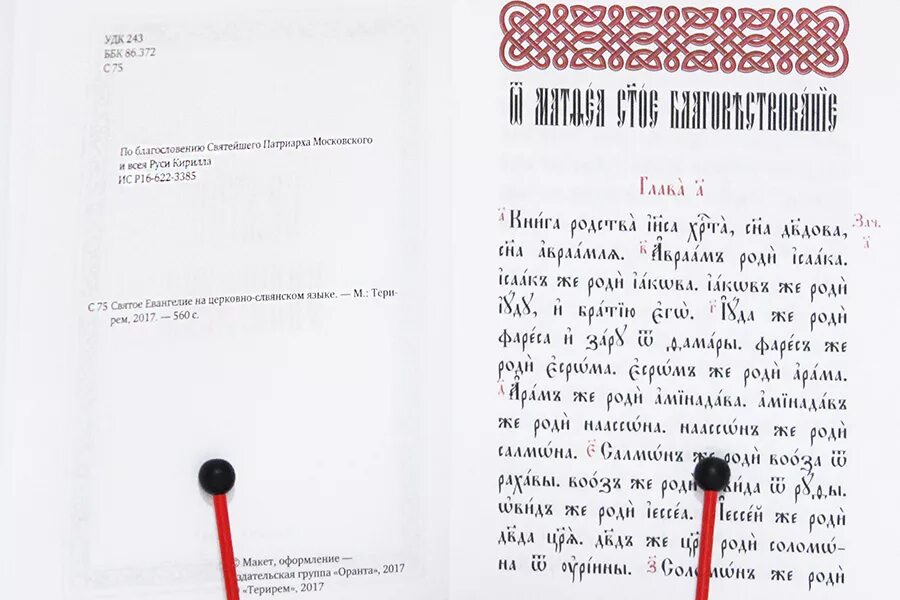 УДК 243
ББК 86.372
С 75
По благословению Святейшего Патриарха Московского
и всея Руси Кирилла
ИС Р16-622-3385
С 75 Святое Евангелие на церковно-слвянском языке. — М.: Тери-
рем, 2017. — 560 с.
© Макет, оформление —
здательская группа «Оранта», 2017
© «Терирем», 2017
Ѿ матѳе́а ст҃о́е благовѣствова́нїе
Глава̀ а҃
а҃ Кни́га родства̀ і҆и҃са хрⷭ҇та̀, сн҃а дв҃дова, Зач. а҃
сн҃а а҆враа́млѧ. в҃ А҆враа́мъ родѝ і҆саа́ка.
і҆саа́къ же родѝ і҆а́кѡва. і҆а́кѡвъ же родѝ
і҆ꙋ́дꙋ, и҆ бра́тїю є҆гѡ̀. г҃ І҆ꙋ́да же родѝ
фаре́са и҆ за́рꙋ ѿ ѳама́ры. фаре́съ же
родѝ є҆срѡ́ма. є҆срѡ́мъ же родѝ а҆ра́ма.
д҃ А҆ра́мъ же родѝ а҆мїнада́ва. а҆мїнада́въ
же родѝ наассѡ́на. наассѡ́нъ же родѝ
салмѡ́на. є҃ Салмѡ́нъ же родѝ воо́за ѿ
раха́вы. воо́зъ же родѝ ѡ҆ви́да ѿ рꙋ́ѳы.
ѡ҆ви́дъ же родѝ і҆ессе́а. І҆ессе́й же родѝ
дв҃да цр҃ѧ̀. дв҃дъ же цр҃ь родѝ соломѡ́-
на ѿ ᲂу҆рі́ины. з҃ Соломѡ́нъ же родѝ